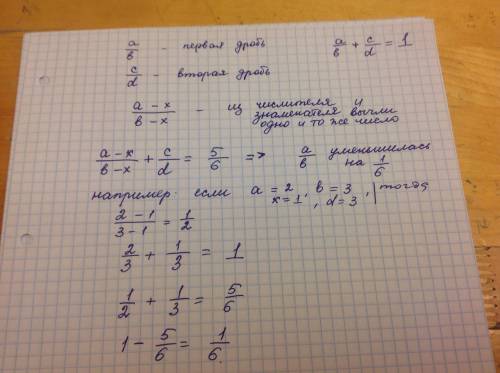 a/b - первая дробь a/b + c/d = 1
c/d - вторая дробь
(a-x)/(b-x) - из числителя и знаменателя вычли одно и то же число
(a-x)/(b-x) + c/d = 5/6 => a/b уменьшилась на 1/6
например: если a = 2, b = 3, | тогда
x = 1, d = 3
(2-1)/(3-1) = 1/2
2/3 + 1/3 = 1
1/2 + 1/3 = 5/6
1 - 5/6 = 1/6.